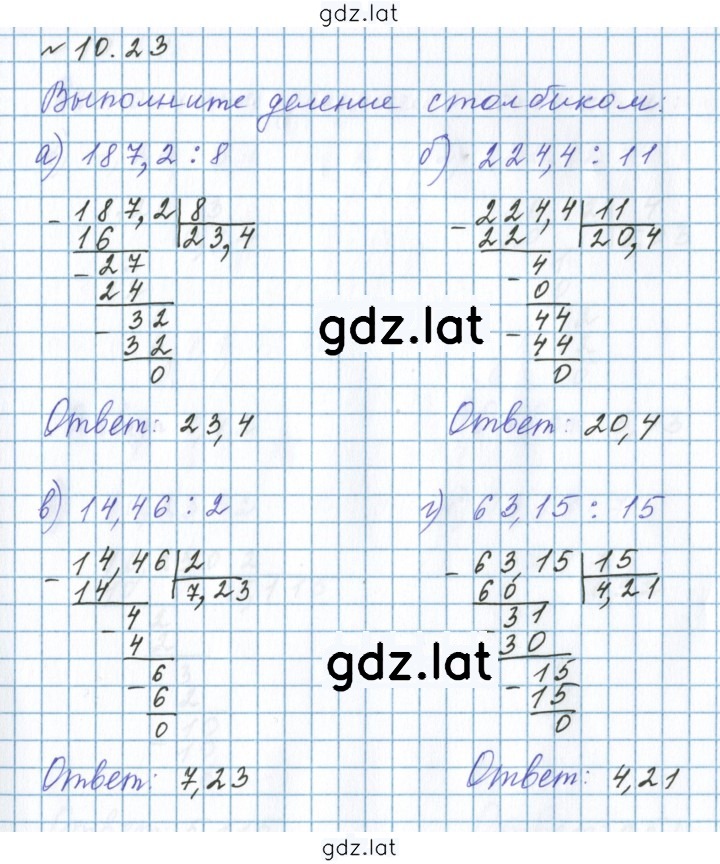 gdz.lat
№ 10.23
Выполните деление столбиком:
а) 187,2 : 8
- 187,2 | 8
16 | 23,4
- 27
24
- 32
32
0
Ответ: 23,4
б) 224,4 : 11
- 224,4 | 11
22 | 20,4
- 4
0
- 44
44
0
Ответ: 20,4
gdz.lat
в) 14,46 : 2
- 14,46 | 2
14 | 7,23
- 4
4
- 6
6
0
Ответ: 7,23
г) 63,15 : 15
- 63,15 | 15
60 | 4,21
31
30
- 15
15
0
Ответ: 4,21
gdz.lat
gdz.lat